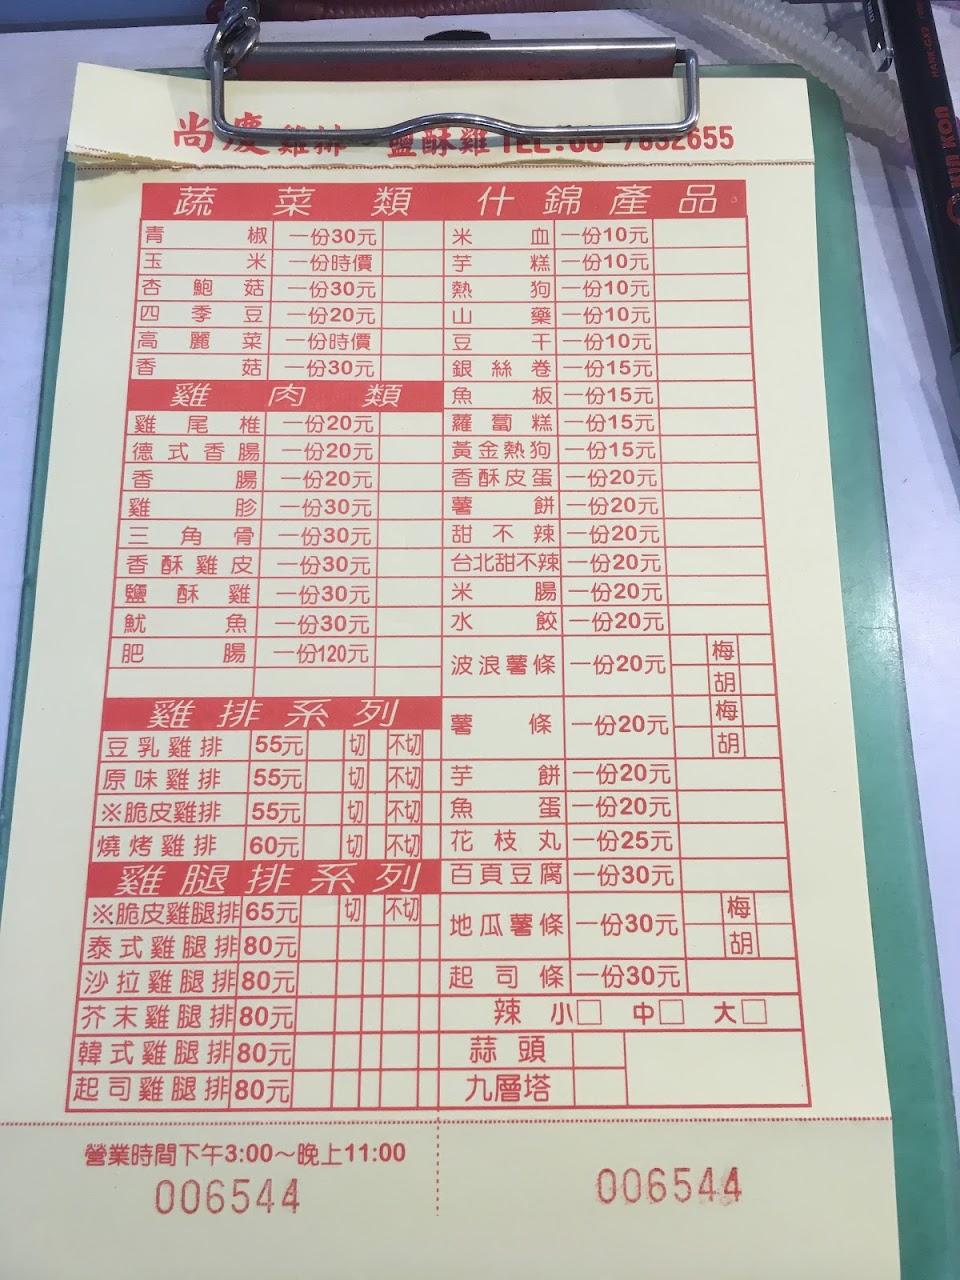 尚慶雞排 鹽酥雞 TEL:06-7832655
蔬菜類
青椒 一份30元
玉米 一份時價
杏鮑菇 一份30元
四季豆 一份20元
高麗菜 一份時價
香菇 一份30元
雞肉類
雞尾椎 一份20元
德式香腸 一份20元
香腸 一份20元
雞胗 一份30元
三角骨 一份30元
香酥雞皮 一份30元
鹽酥雞 一份30元
魷魚 一份30元
肥腸 一份120元
雞排系列
豆乳雞排 55元 切 不切
原味雞排 55元 切 不切
※脆皮雞排 55元 切 不切
燒烤雞排 60元 切 不切
雞腿排系列
※脆皮雞腿排 65元 切 不切
泰式雞腿排 80元
沙拉雞腿排 80元
芥末雞腿排 80元
韓式雞腿排 80元
起司雞腿排 80元
什錦產品
米血 一份10元
芋糕 一份10元
熱狗 一份10元
山藥 一份10元
豆干 一份10元
銀絲卷 一份15元
魚板 一份15元
蘿蔔糕 一份15元
黃金熱狗 一份15元
香酥皮蛋 一份20元
薯餅 一份20元
甜不辣 一份20元
台北甜不辣 一份20元
米腸 一份20元
水餃 一份20元
波浪薯條 一份20元 梅 胡
薯條 一份20元 梅 胡
芋餅 一份20元
魚蛋 一份20元
花枝丸 一份25元
百頁豆腐 一份30元
地瓜薯條 一份30元 梅 胡
起司條 一份30元
辣 小□ 中□ 大□
蒜頭
九層塔
營業時間下午3:00～晚上11:00
006544
006544
KIN KON